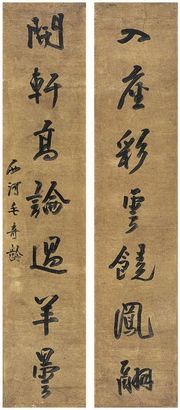 入座彩雲饒鳳翽
開軒高論過羊曇
西河毛奇齡